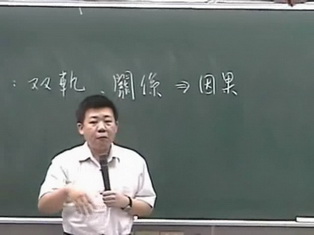 ：双軌、關係⇒因果